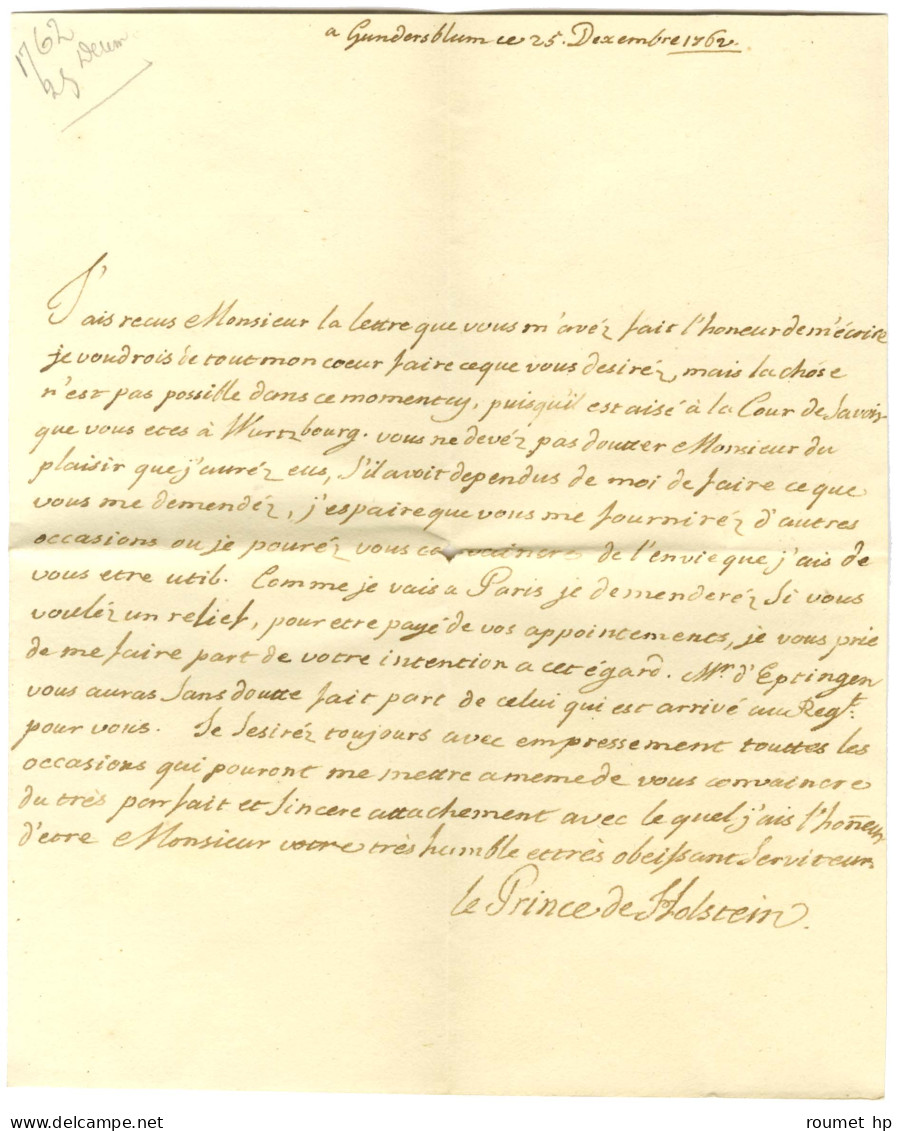 1762
25 Decem
a Gundersblum ce 25. Dexembre 1762.
J'ais recus Monsieur la lettre que vous m'avéz fait l'honeur de m'écrire
je voudrois de tout mon coeur faire ce que vous desiréz, mais la chose
n'est pas possible dans ce moment cy, puisqu'il est aisé à la Cour de Savoir
que vous etes à Wurtzbourg. vous ne devéz pas doutter Monsieur du
plaisir que j'auréz eus, S'il avoit dependus de moi de faire ce que
vous me demendéz, j'espaire que vous me fourniréz d'autres
occasions ou je pouréz vous convaincre de l'envie que j'ais de
vous etre util. Comme je vais a Paris je demenderéz Si vous
vouléz un relief, pour etre payé de vos appointements, je vous prie
de me faire part de votre intention a cet égard. Mr. d'Eptingen
vous auras Sans doutte fait part de celui qui est arrivé au Regt.
pour vous. Je desiréz toujours avec empressement touttes les
occasions qui pouront me mettre a meme de vous convaincre
du très parfait et Sincere attachement avec le quel j'ais l'honneur
d'etre Monsieur votre très humble et très obeissant Serviteur
le Prince de Holstein.
DELCAMPE.NET
roumet hp